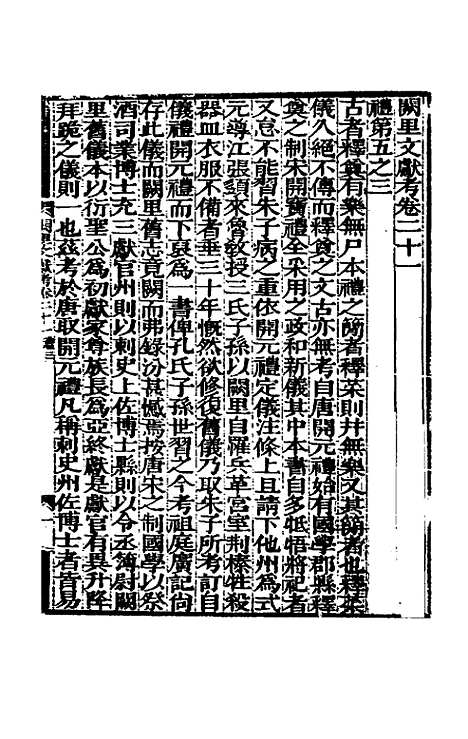 闕里文獻考卷二十一
禮第五之三
古者釋奠有樂無尸本禮之簡者釋菜則幷無樂又其簡者也釋菜
儀久絕不傳而釋奠之文古亦無考自唐開元禮始有國學郡縣釋
奠之制宋開寶禮全采用之政和新儀其中本書自多牴牾將祀者
又怠不能習朱子病之重依開元禮定儀注條上且請下他州為式
元導江張𩔰來魯教授三氏子孫以闕里自罹兵革宮室荆榛牲殺
器皿衣服不備者垂三十年慨然欲修復舊儀乃取朱子所考訂自
儀禮開元禮而下裒為一書俾孔氏子孫世習之今考祖庭廣記尚
存此儀而闕里舊志竟闕而弗錄汾甚憾焉按唐宋之制國學以祭
酒司業博士充三獻官州則以刺史上佐博士縣則以令丞簿尉闕
里舊儀本以衍聖公為初獻家尊族長為亞終獻是獻官有異升降
拜跪之儀則一也茲考於唐取開元禮凡稱刺史州佐博士者皆易